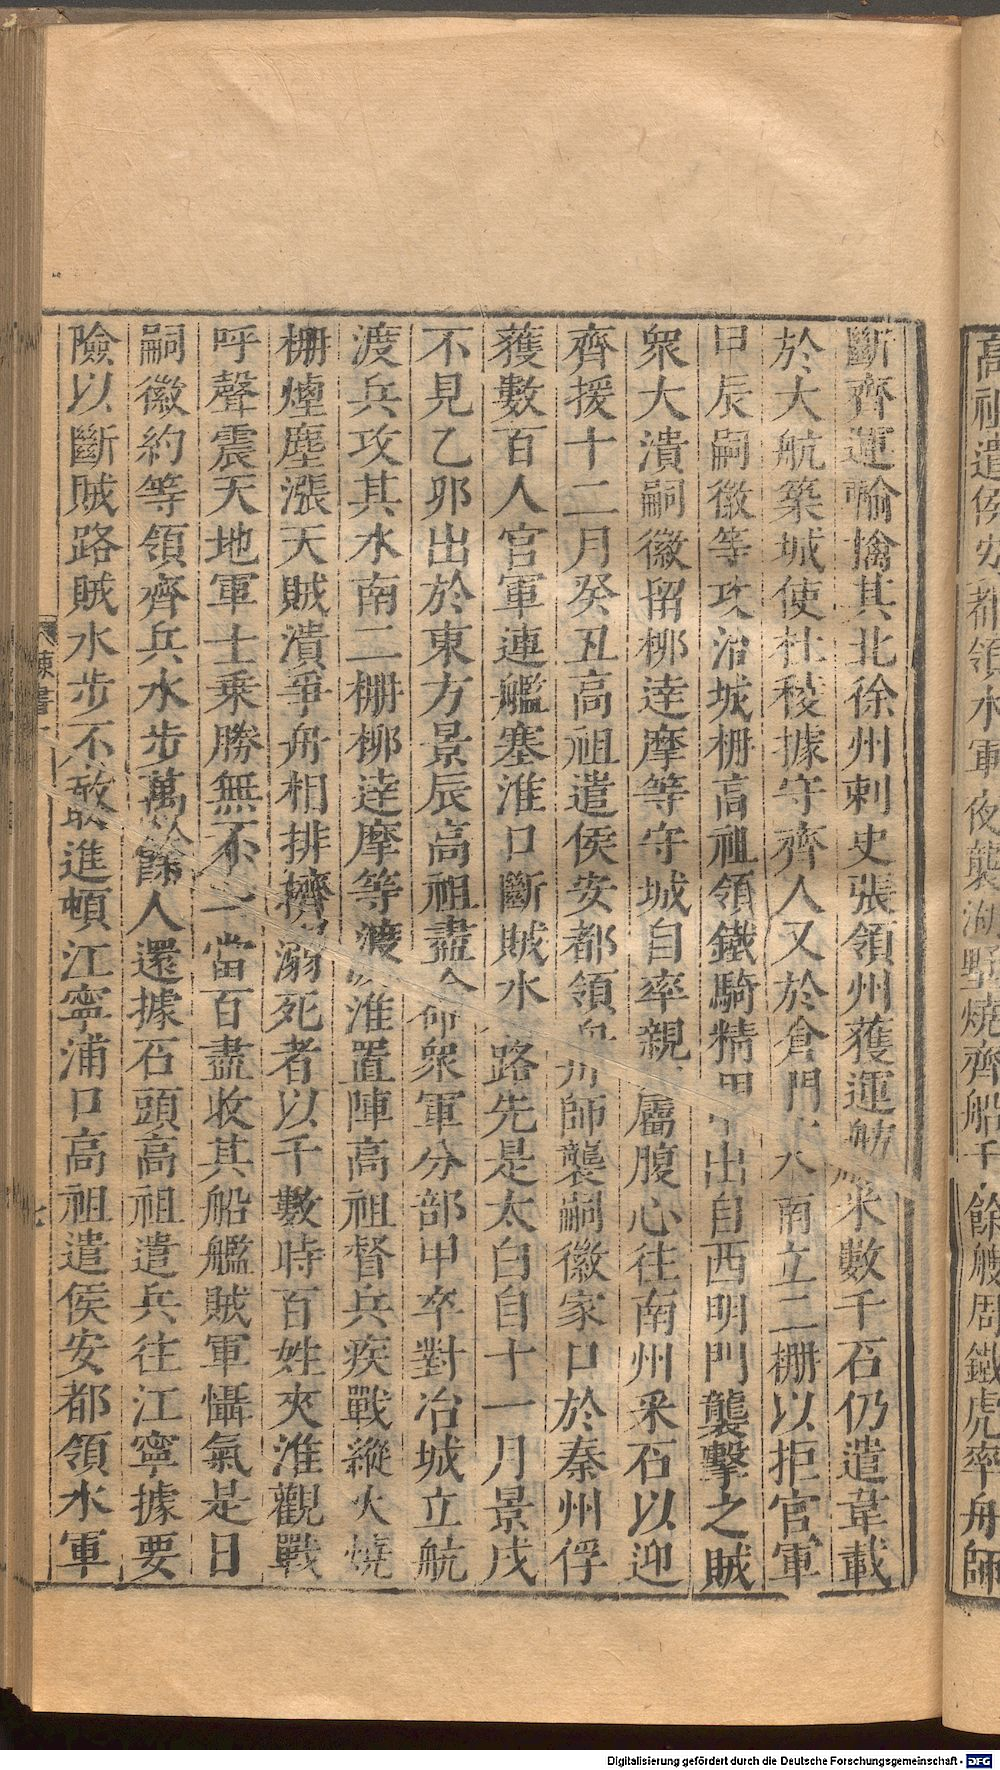 高祖遣侯安都領水軍夜襲湖墅燒齊船千餘艘周鐵虎率舟師
斷齊運輸擒其北徐州刺史張領州獲運舫米數千石仍遣韋載
於大航築城使杜稜據守齊人又於倉門水南立二栅以拒官軍
甲辰嗣徽等攻冶城栅高祖領鐵騎精甲出自西明門襲擊之賊
衆大潰嗣徽留柳逹摩等守城自率親屬腹心往南州采石以迎
齊援十二月癸丑高祖遣侯安都領舟師襲嗣徽家口於秦州俘
獲數百人官軍連艦塞淮口斷賊水路先是太白自十一月景戌
不見乙卯出於東方景辰高祖盡命衆軍分部甲卒對冶城立航
渡兵攻其水南二栅柳逹摩等渡淮置陣高祖督兵疾戰縱火燒
栅煙塵漲天賊潰爭舟相排擠溺死者以千數時百姓夾淮觀戰
呼聲震天地軍士乗勝無不一當百盡收其船艦賊軍懾氣是日
嗣徽約等領齊兵水步萬餘人還據石頭高祖遣兵往江寧據要
險以斷賊路賊水步不敢進頓江寧浦口高祖遣侯安都領水軍
陳書一
七
Digitalisierung gefördert durch die Deutsche Forschungsgemeinschaft - DFG